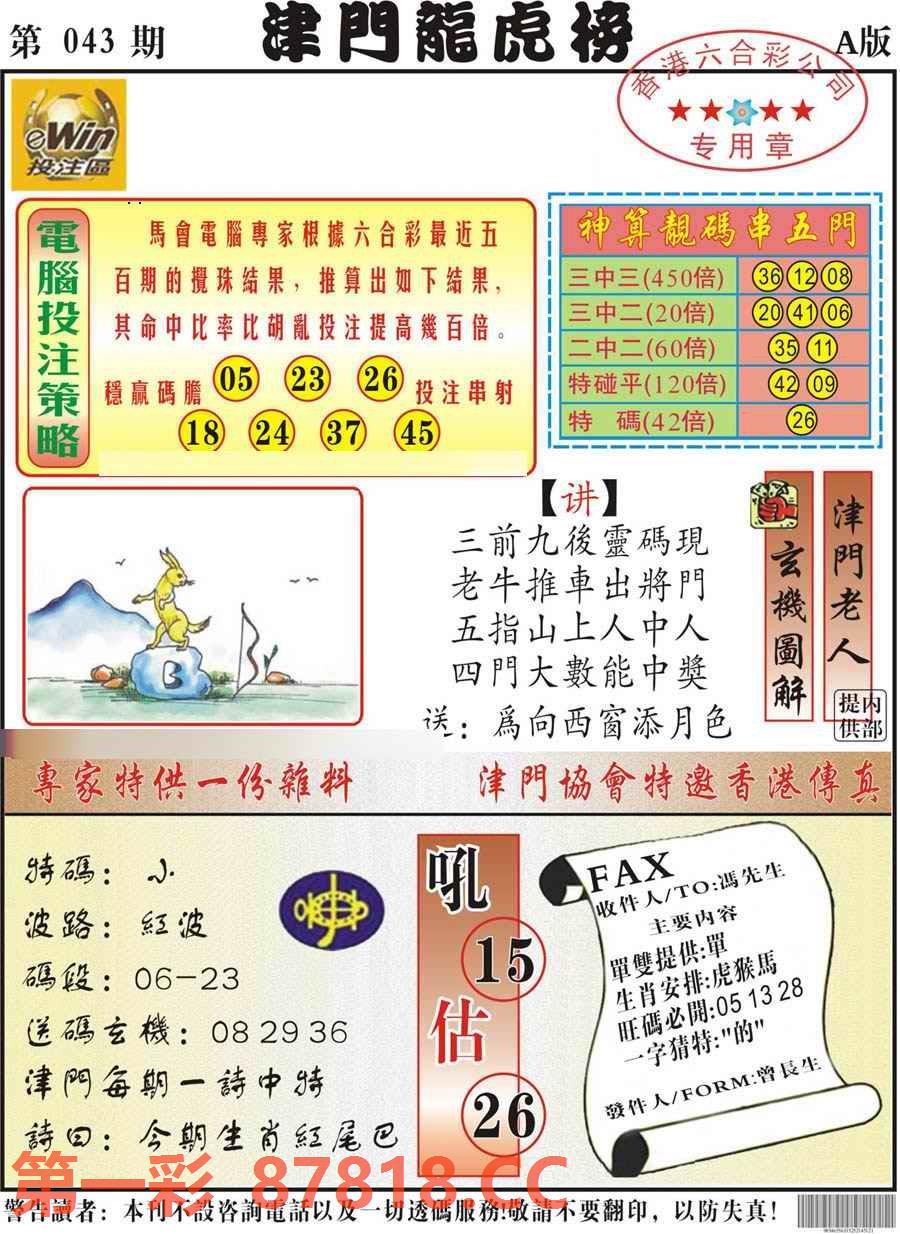 第 043 期
津門龍虎榜
A版
香港六合彩公司
专用章
eWin
投注區
電腦投注策略
馬會電腦專家根據六合彩最近五
百期的攪珠結果，推算出如下結果，
其命中比率比胡亂投注提高幾百倍。
穩贏碼膽 05 23 26 投注串射
18 24 37 45
神算靚碼串五門
三中三(450倍) 36 12 08
三中二(20倍) 20 41 06
二中二(60倍) 35 11
特碰平(120倍) 42 09
特 碼(42倍) 26
B
【讲】
三前九後靈碼現
老牛推車出將門
五指山上人中人
四門大數能中獎
送：爲向西窗添月色
玄機圖解
津門老人
内部提供
專家特供一份雜料
津門協會特邀香港傳真
特碼：小
波路：紅波
碼段：06－23
送碼玄機：08 29 36
津門每期一詩中特
詩曰：今期生肖紅尾巴
吼
15
估
26
FAX
收件人/TO:馮先生
主要内容
單雙提供:單
生肖安排:虎猴馬
旺碼必開:05 13 28
一字猜特:"的"
發件人/FORM:曾長生
第一彩 87818.CC
警告讀者：本刊不設咨詢電話以及一切透碼服務!敬請不要翻印，以防失真!